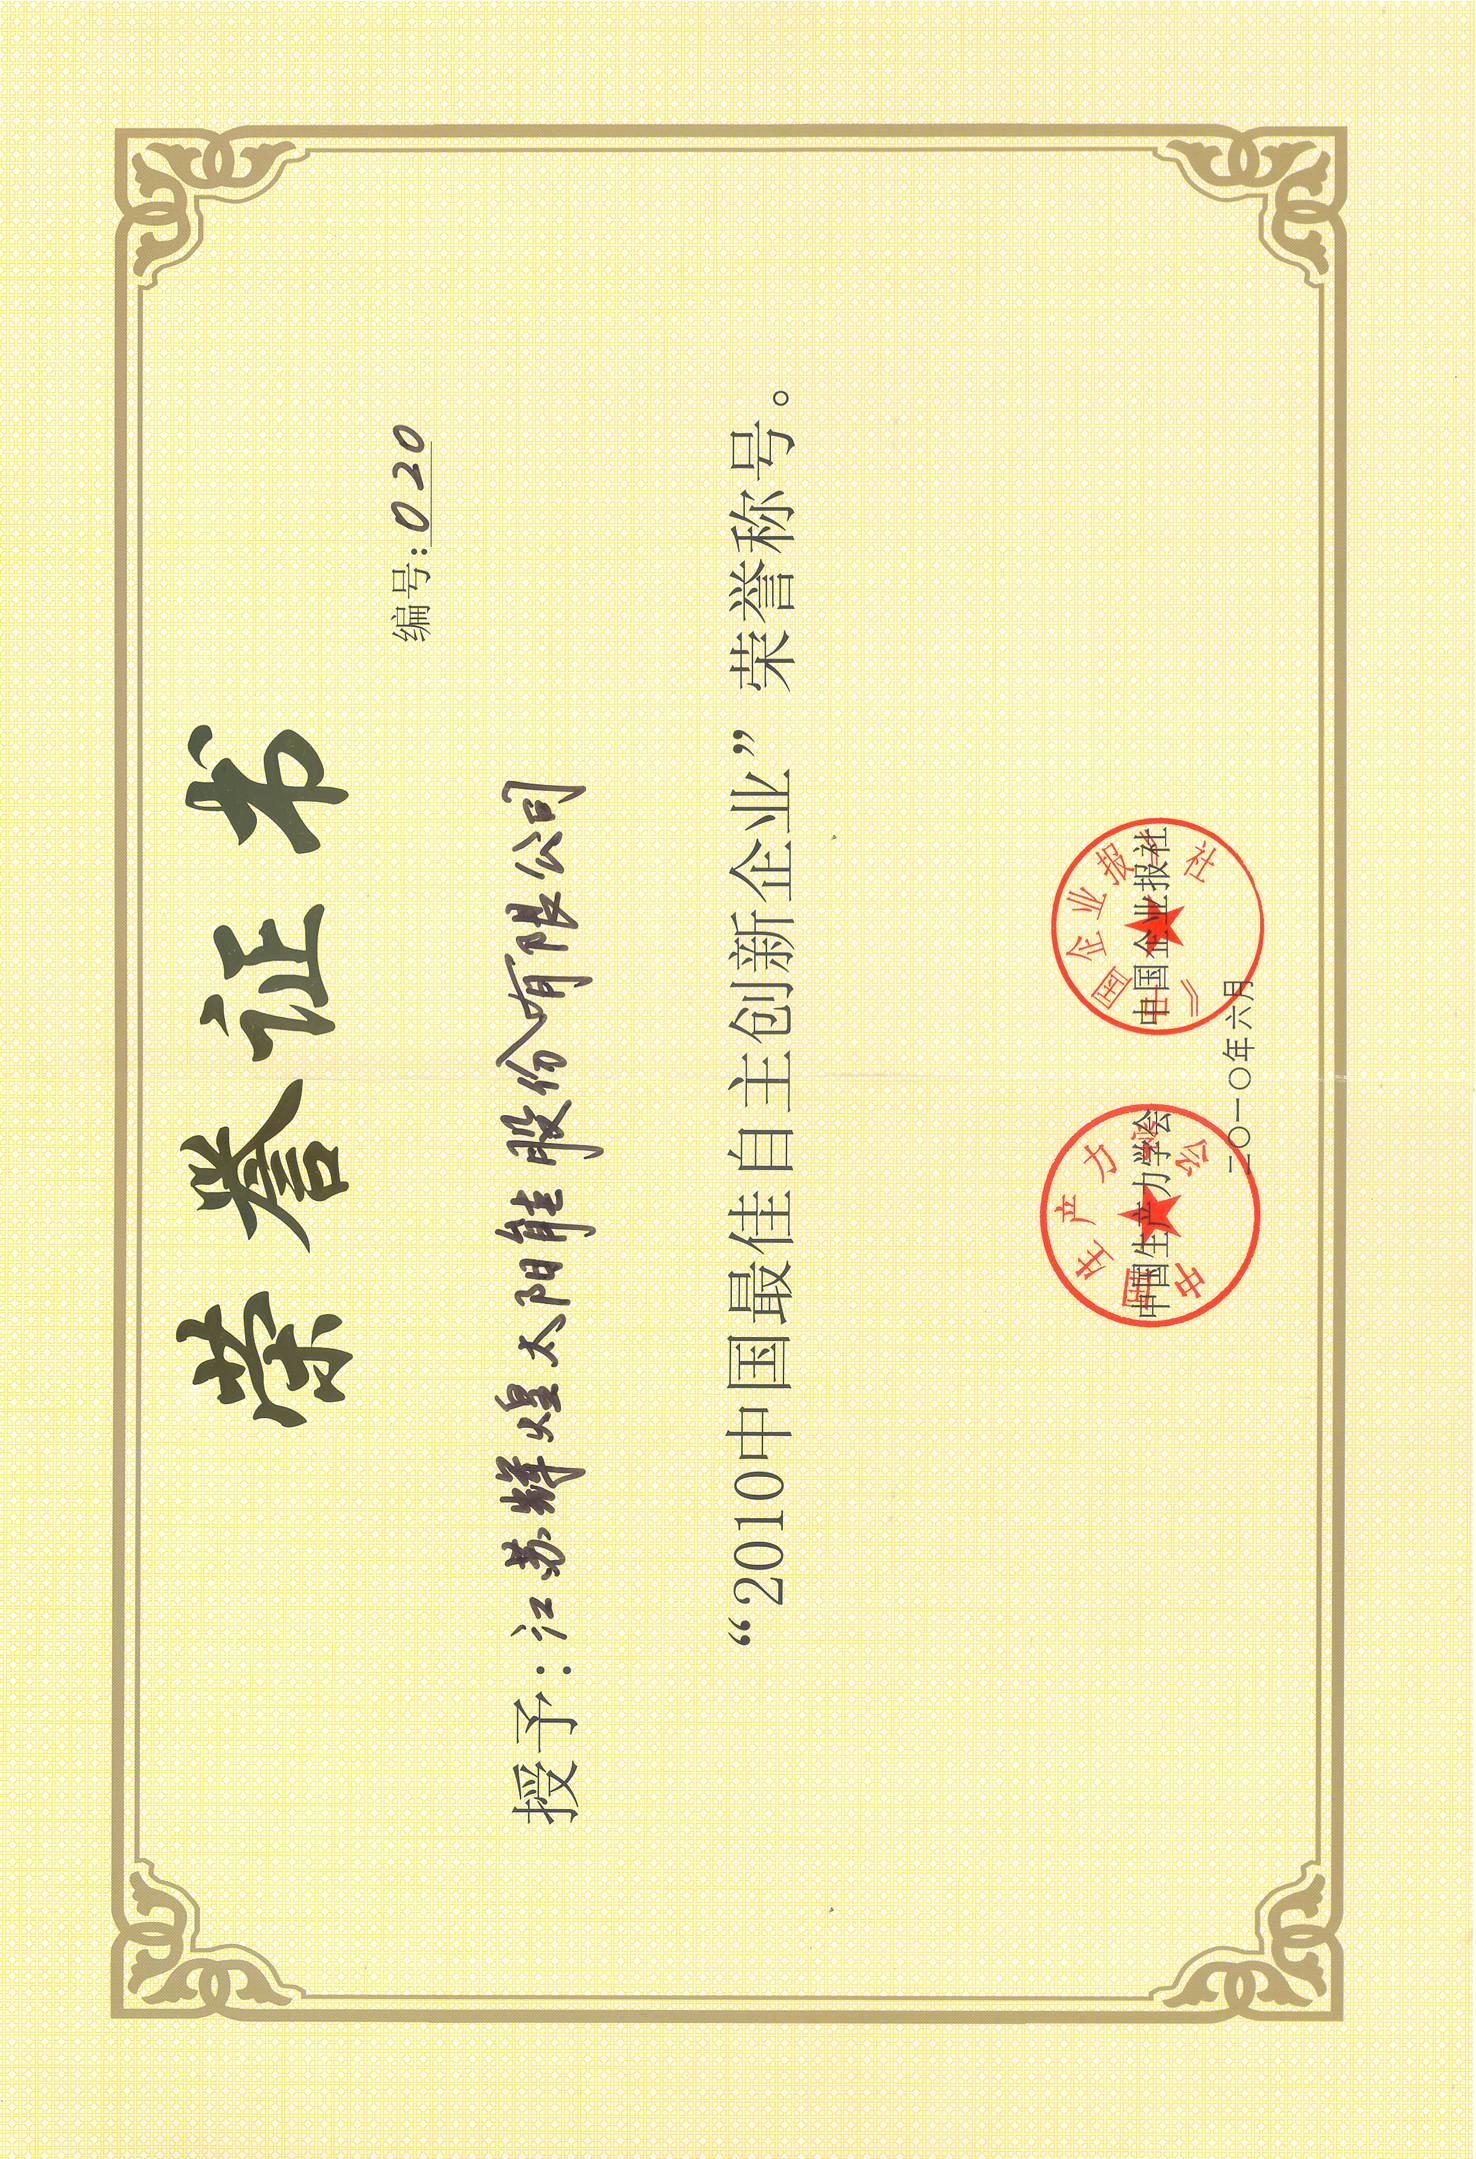 荣誉证书
编号:020
授予:江苏辉煌太阳能股份有限公司
“2010中国最佳自主创新企业”荣誉称号。
中国生产力学会 中国企业报社
中国生产力学会
《中国企业报》社
二〇一〇年六月